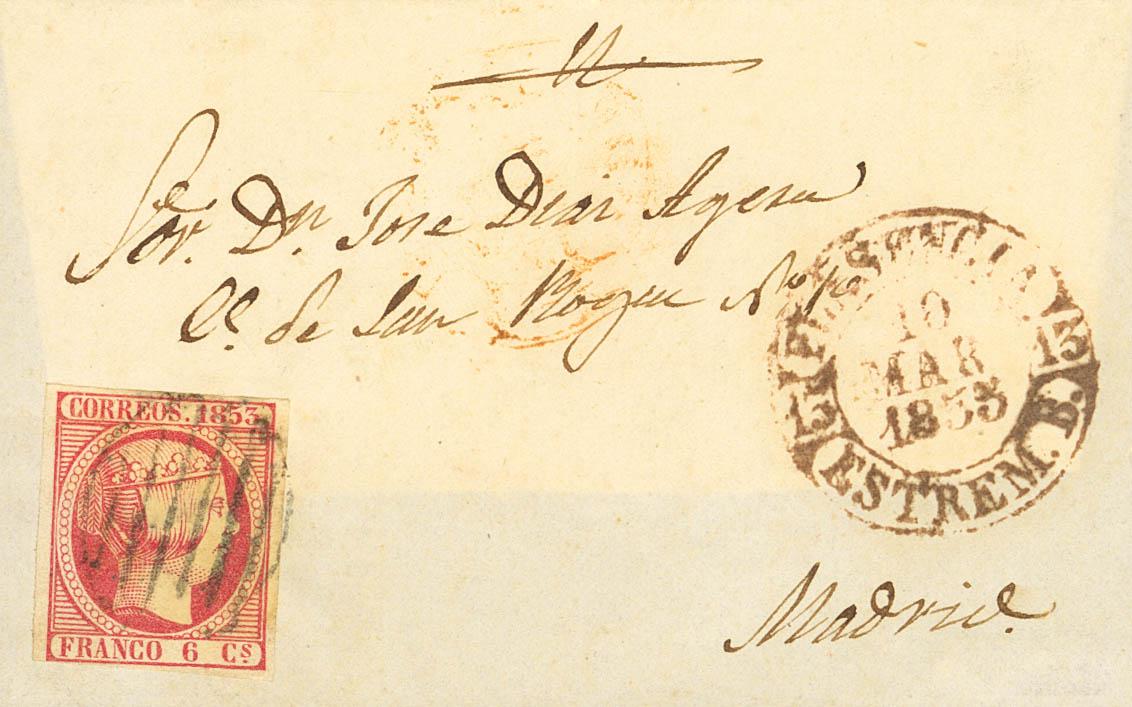 Sor. Dn. Jose Dias Agera
Ce. de San Roque No
PLASENCIA
10
MAR
1853
13 13
ESTREM. B.
CORREOS. 1853
FRANCO 6 Cs
Madrid.